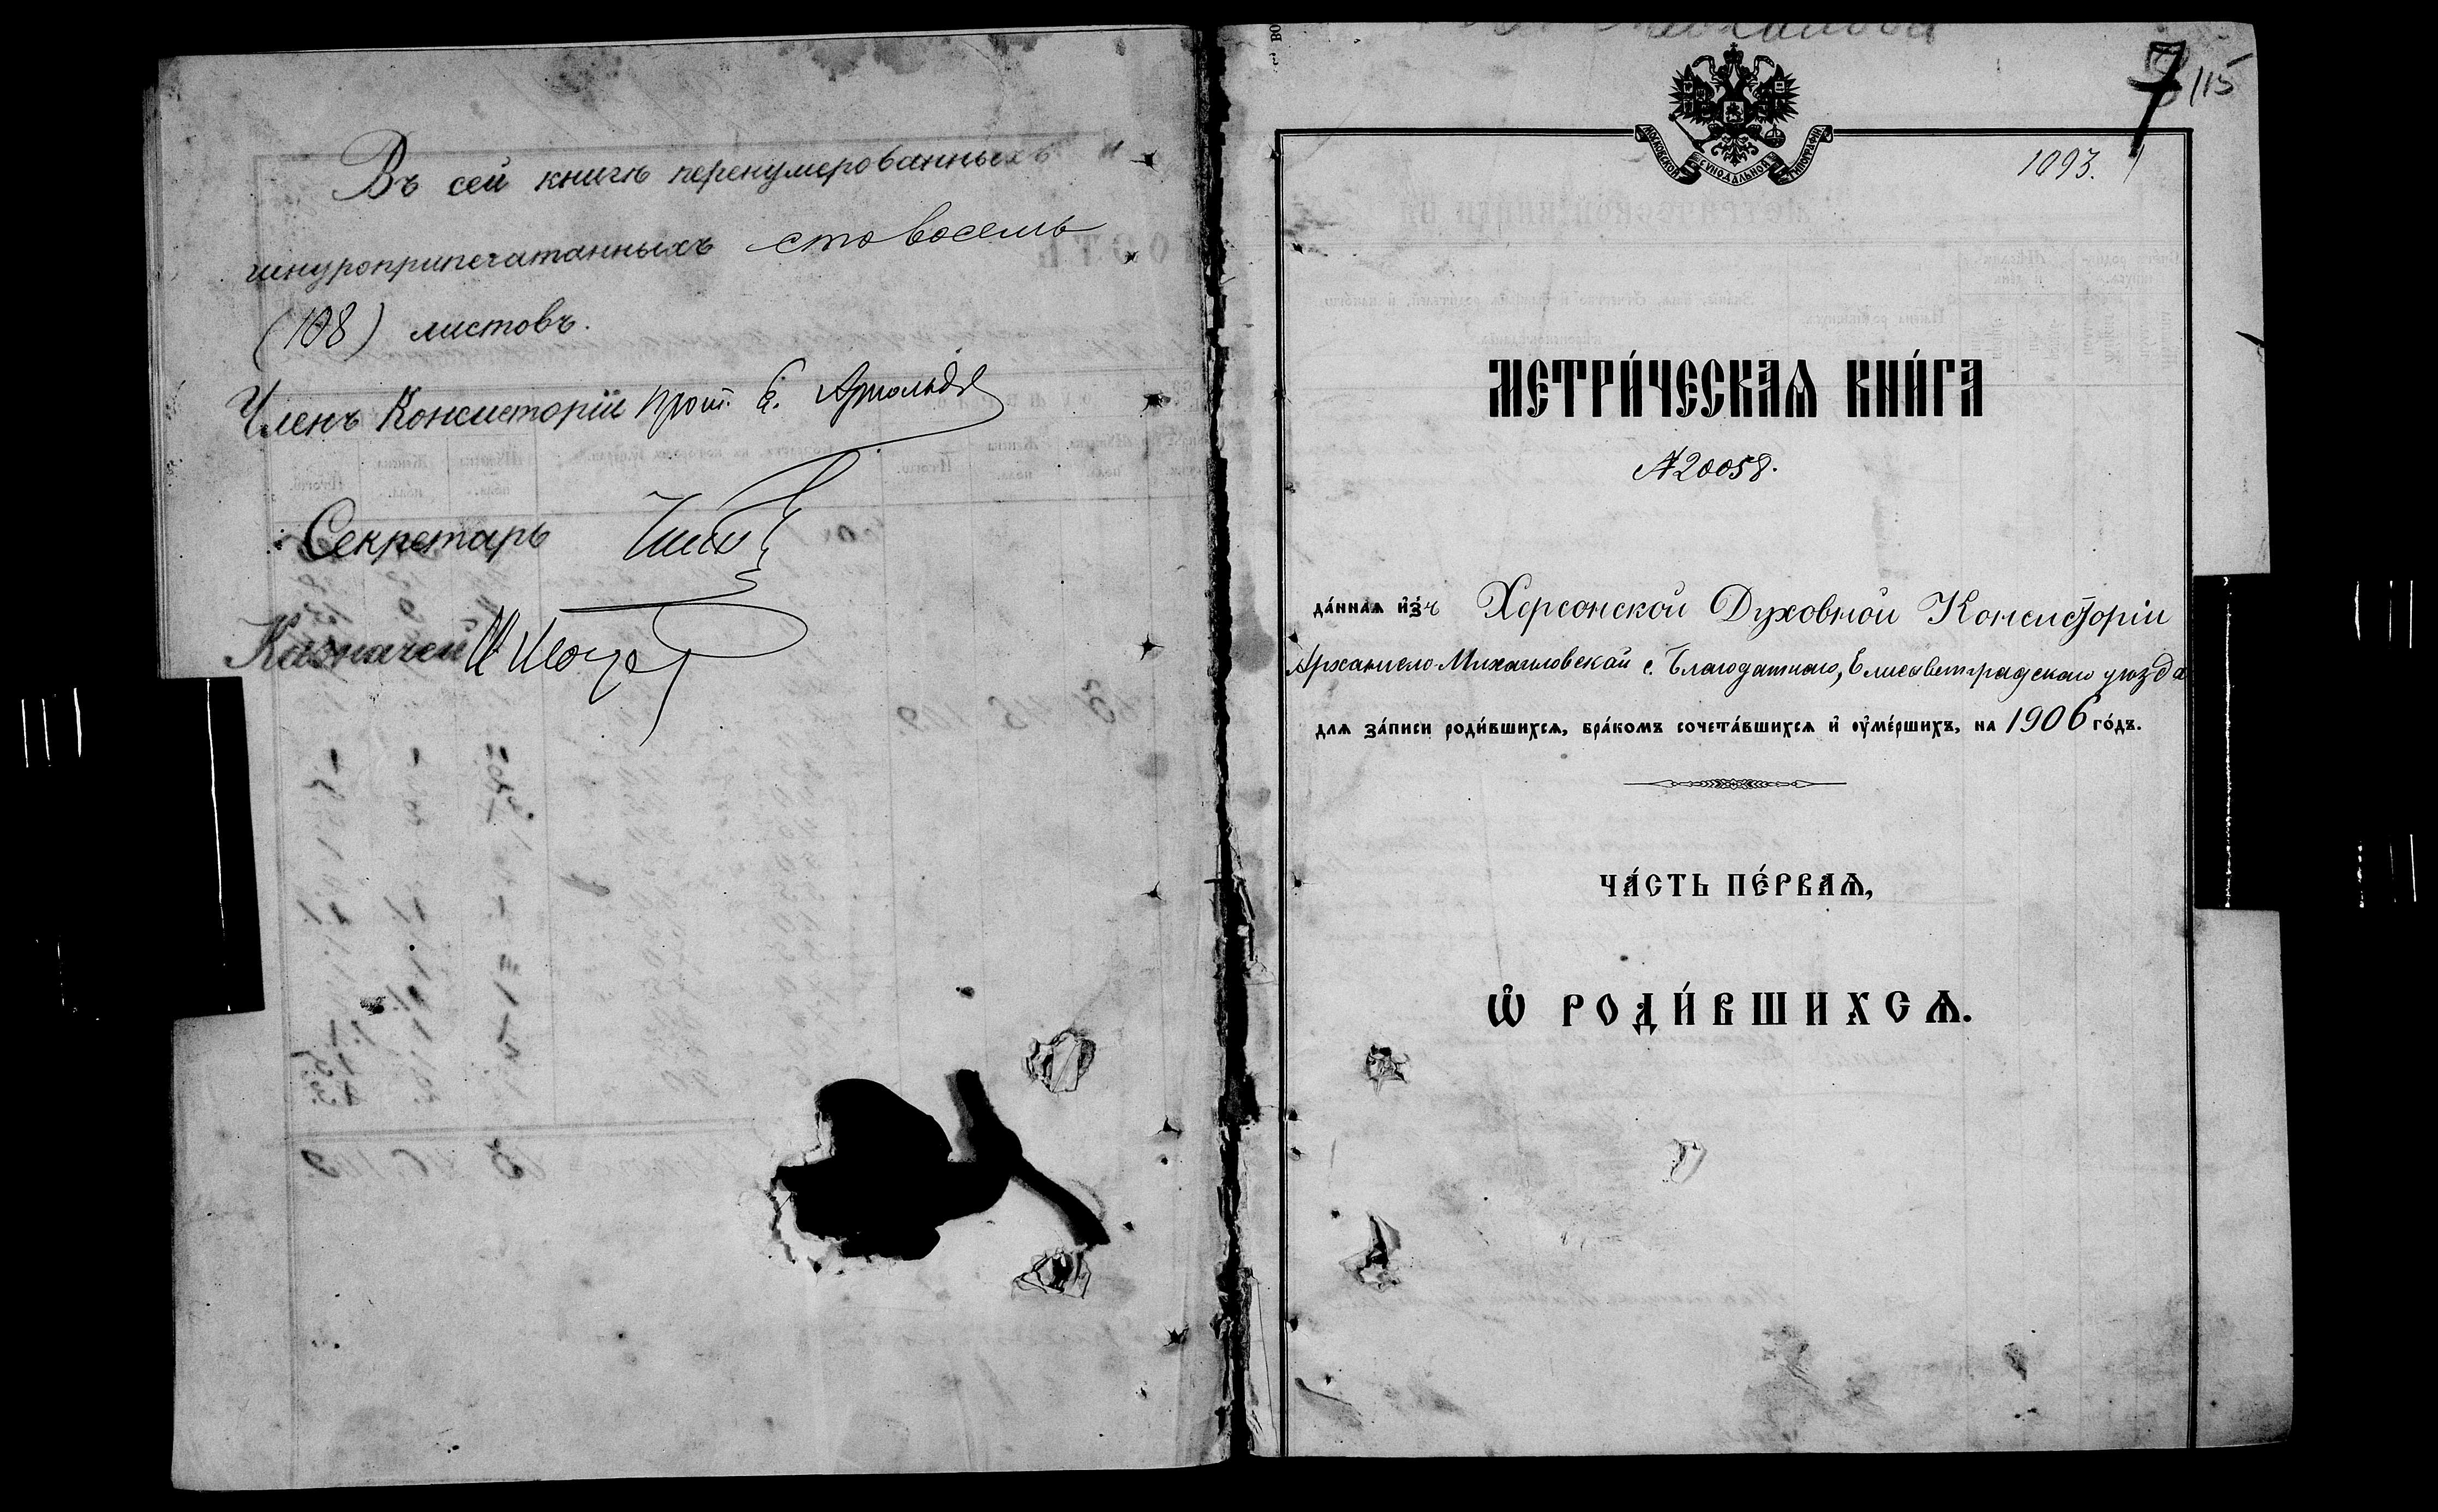 Въ сей книгѣ перенумерованныхъ и
шнуроприпечатанныхъ сто восемь
(108) листовъ.
Членъ Консисторіи прот.
Секретарь
Казначей
7/15
МОСКОВСКОЙ СѴНОДАЛЬНОЙ ТИПОГРАФІИ
1093.
МЕТРИ́ЧЕСКАѦ КНИ́ГА
№20058.
да́ннаѧ и҆зъ Херсонской Духовной Консисторіи
Архангело-Михайловской с. Благодатнаго, Елисаветградскаго уѣзда
длѧ за́писи роди́вшихсѧ, бра́комъ сочета́вшихсѧ и҆ оу҆ме́ршихъ, на 1906 го́дъ.
ЧА́СТЬ ПЕ́РВАѦ,
Ѡ҆ РОДИ́ВШИХСѦ.